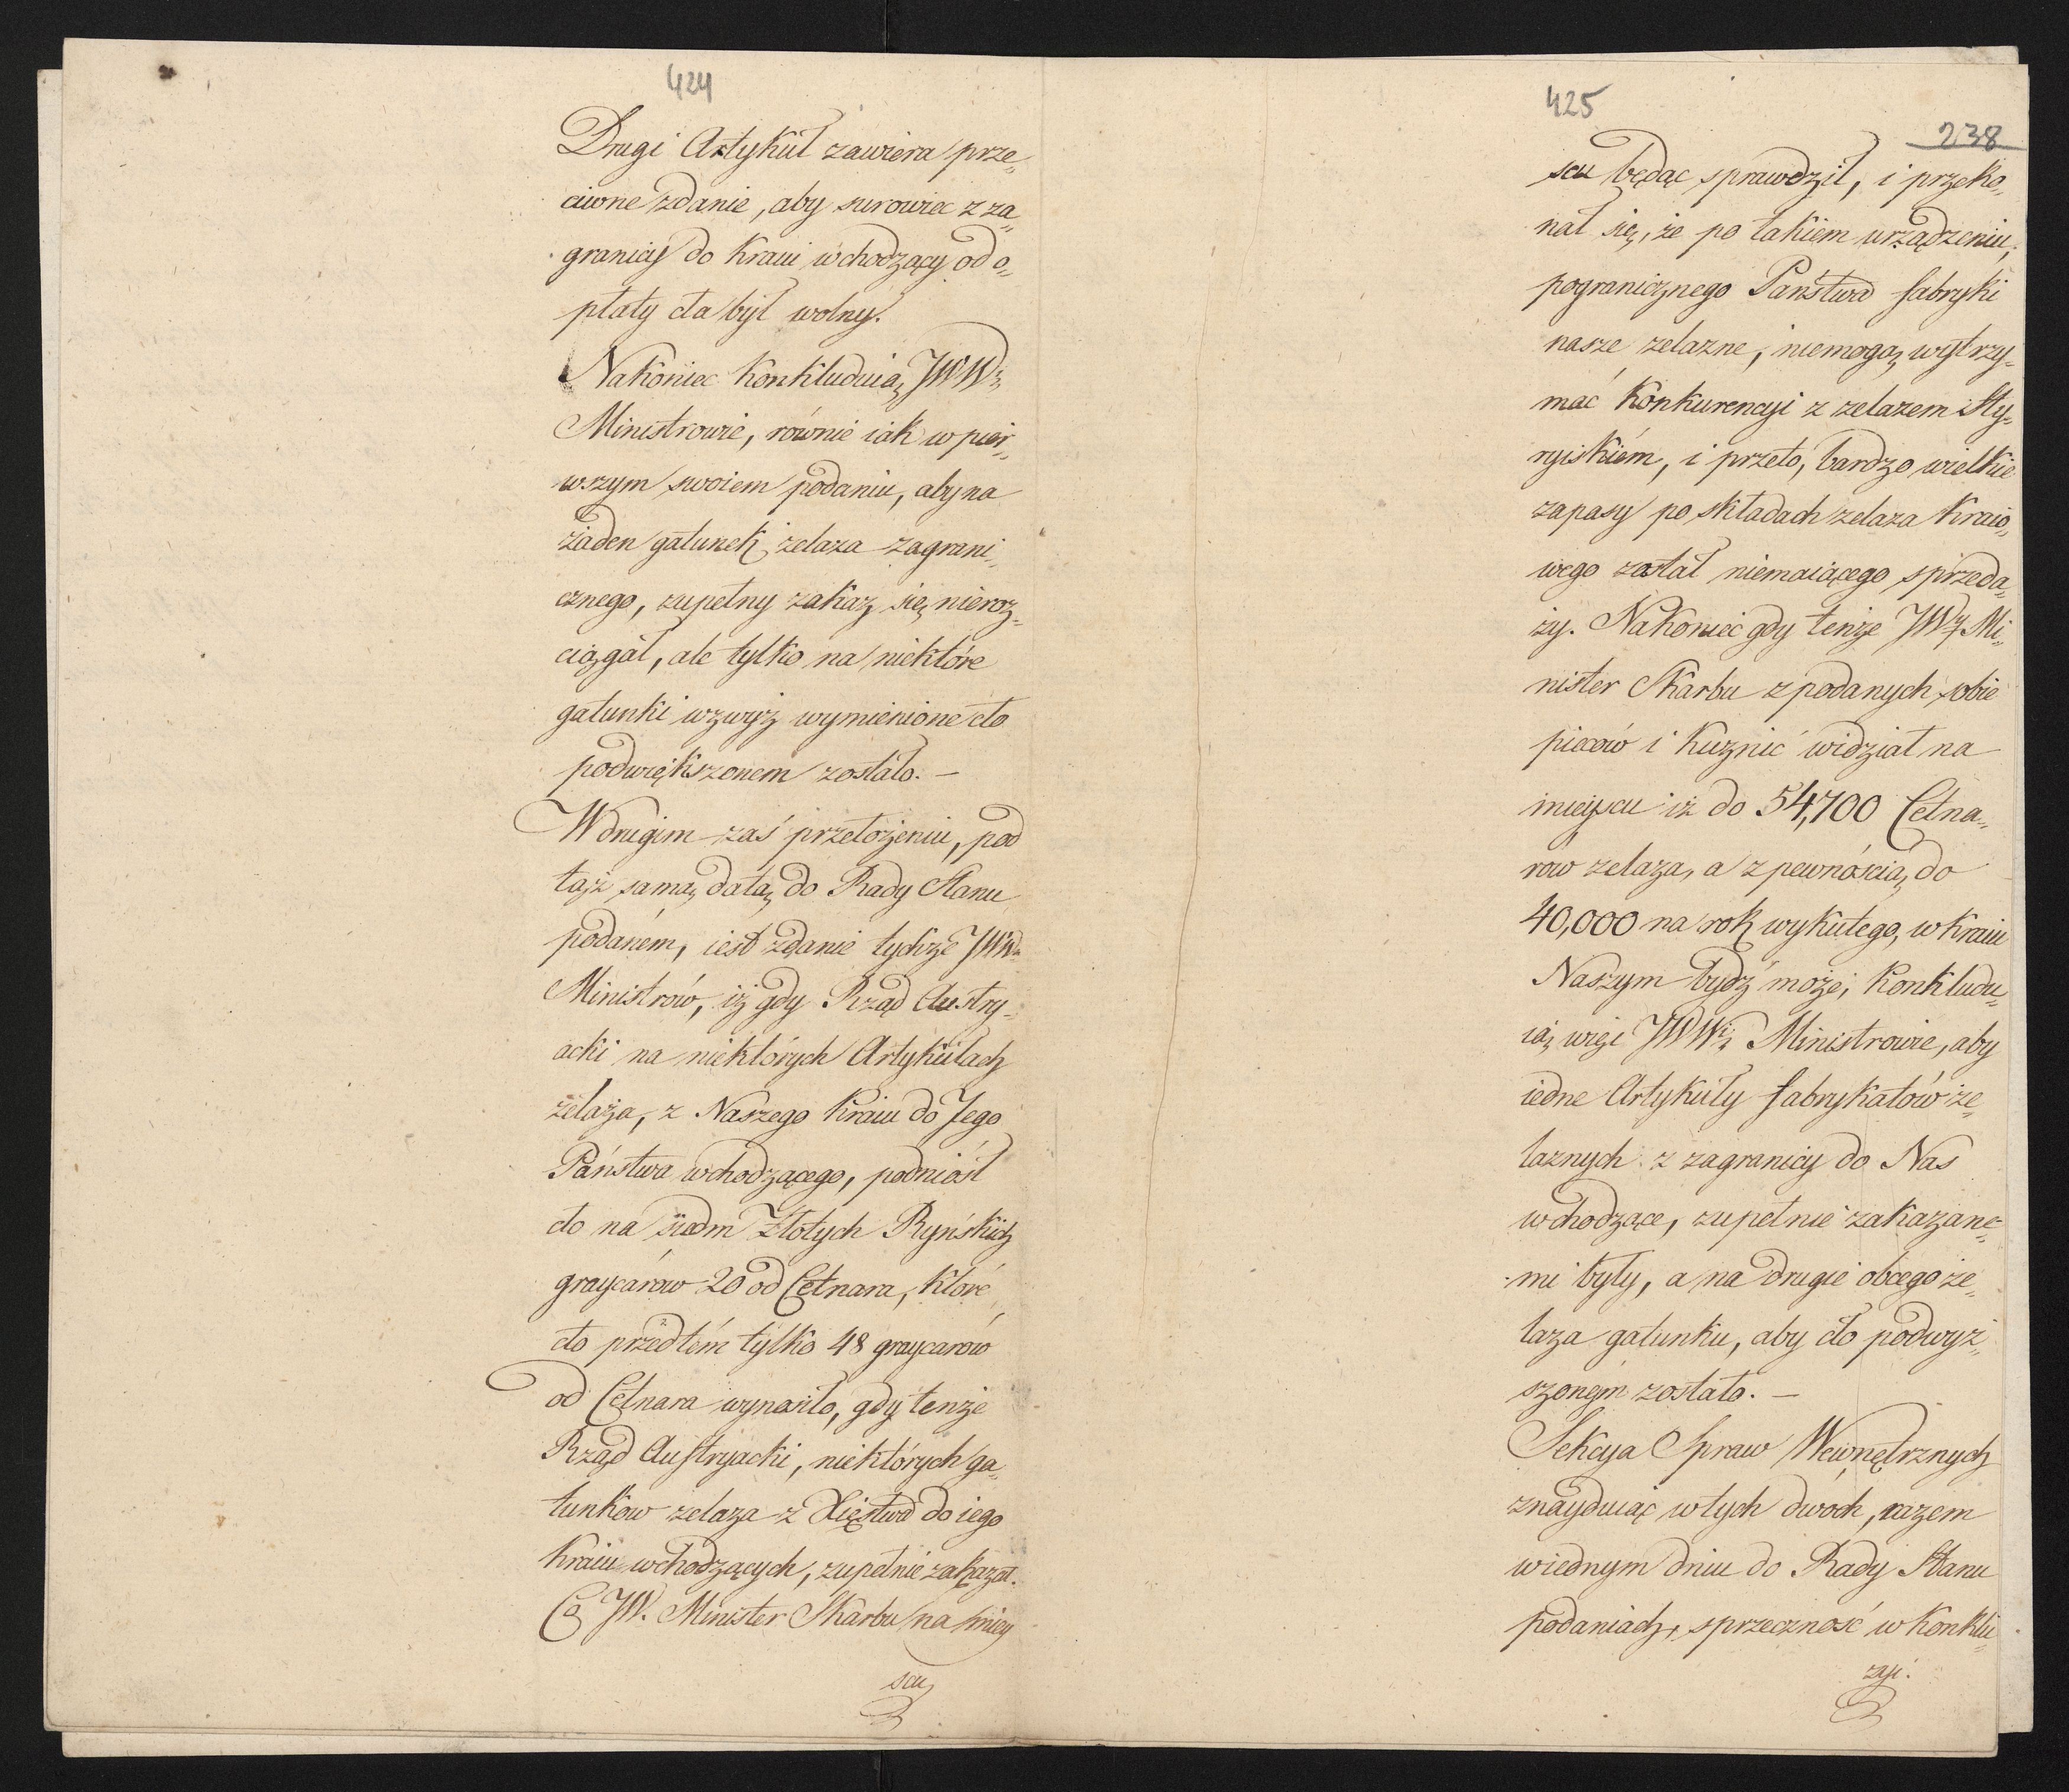 424
Drugi Artykuł zawiera prze„
ciwne zdanie, aby surowiec z za„
granicy do Kraiu wchodzący od o„
płaty cła był wolny.
Nakoniec konkluduią JWWi
Ministrowie, równie iak w pier„
wszym swoiem podaniu, aby na
żaden gatunek żelaza zagrani„
cznego, zupełny zakaz się nieroz„
ciągał, ale tylko na niektóre
gatunki wzwyż wymienione cło
podwiększonem zostało. —
W drugim zaś przełożeniu, pod
tąż samą datą do Rady Stanu
podaném, iest zdanie tychże JWW
Ministrów, iż gdy Rząd Austry„
acki na niektórych Artykułach
żelaza, z Naszego Kraiu do Jego
Państwa wchodzącego, podniósł
cło na siedm Złotych Ryńskich
graycarów 20 od Cetnara, które
cło przedtém tylko 48 graycarów
od Cetnara wynosiło, gdy tenże
Rząd Austryacki, niektórych ga„
tunkow zelaza z Xięstwa do iego
kraiu wchodzących, zupełnie zakazał.
Co JW. Minister Skarbu na miey
scu
425
238
scu będąc sprawdził, i przeko„
nał się, że po takiem urządzeniu,
pogranicznego Państwa fabryki
nasze zelazne, niemogą wytrzy„
mać Konkurencyi z zelazem Sty„
ryiskiém, i przeto, bardzo wielkie
zapasy po składach zelaza Kraio„
wego zastał niemaiącego sprzeda„
ży. Nakoniec gdy tenże JWy Mi„
nister Skarbu z podanych sobie
pieców i Kuznic widział na
mieyscu iż do 54,700 Cetna„
row zelaza, a z pewnością, do
40,000 na rok wykutego, w kraiu
Naszym bydź może; Konkludu„
ią więc JWWi Ministrowie, aby
iedne Artykuły fabrykatów że„
laznych z zagranicy do Nas
wchodzące, zupełnie zakazane„
mi były, a na drugie obcego że„
laza gatunku, aby cło podwyż„
szonem zostało. —
Sekcya Spraw Wewnętrznych
znayduiąc w tych dwoch, razem
w iednym dniu do Rady Stanu
podaniach, sprzeczność w Konklu„
zyi.